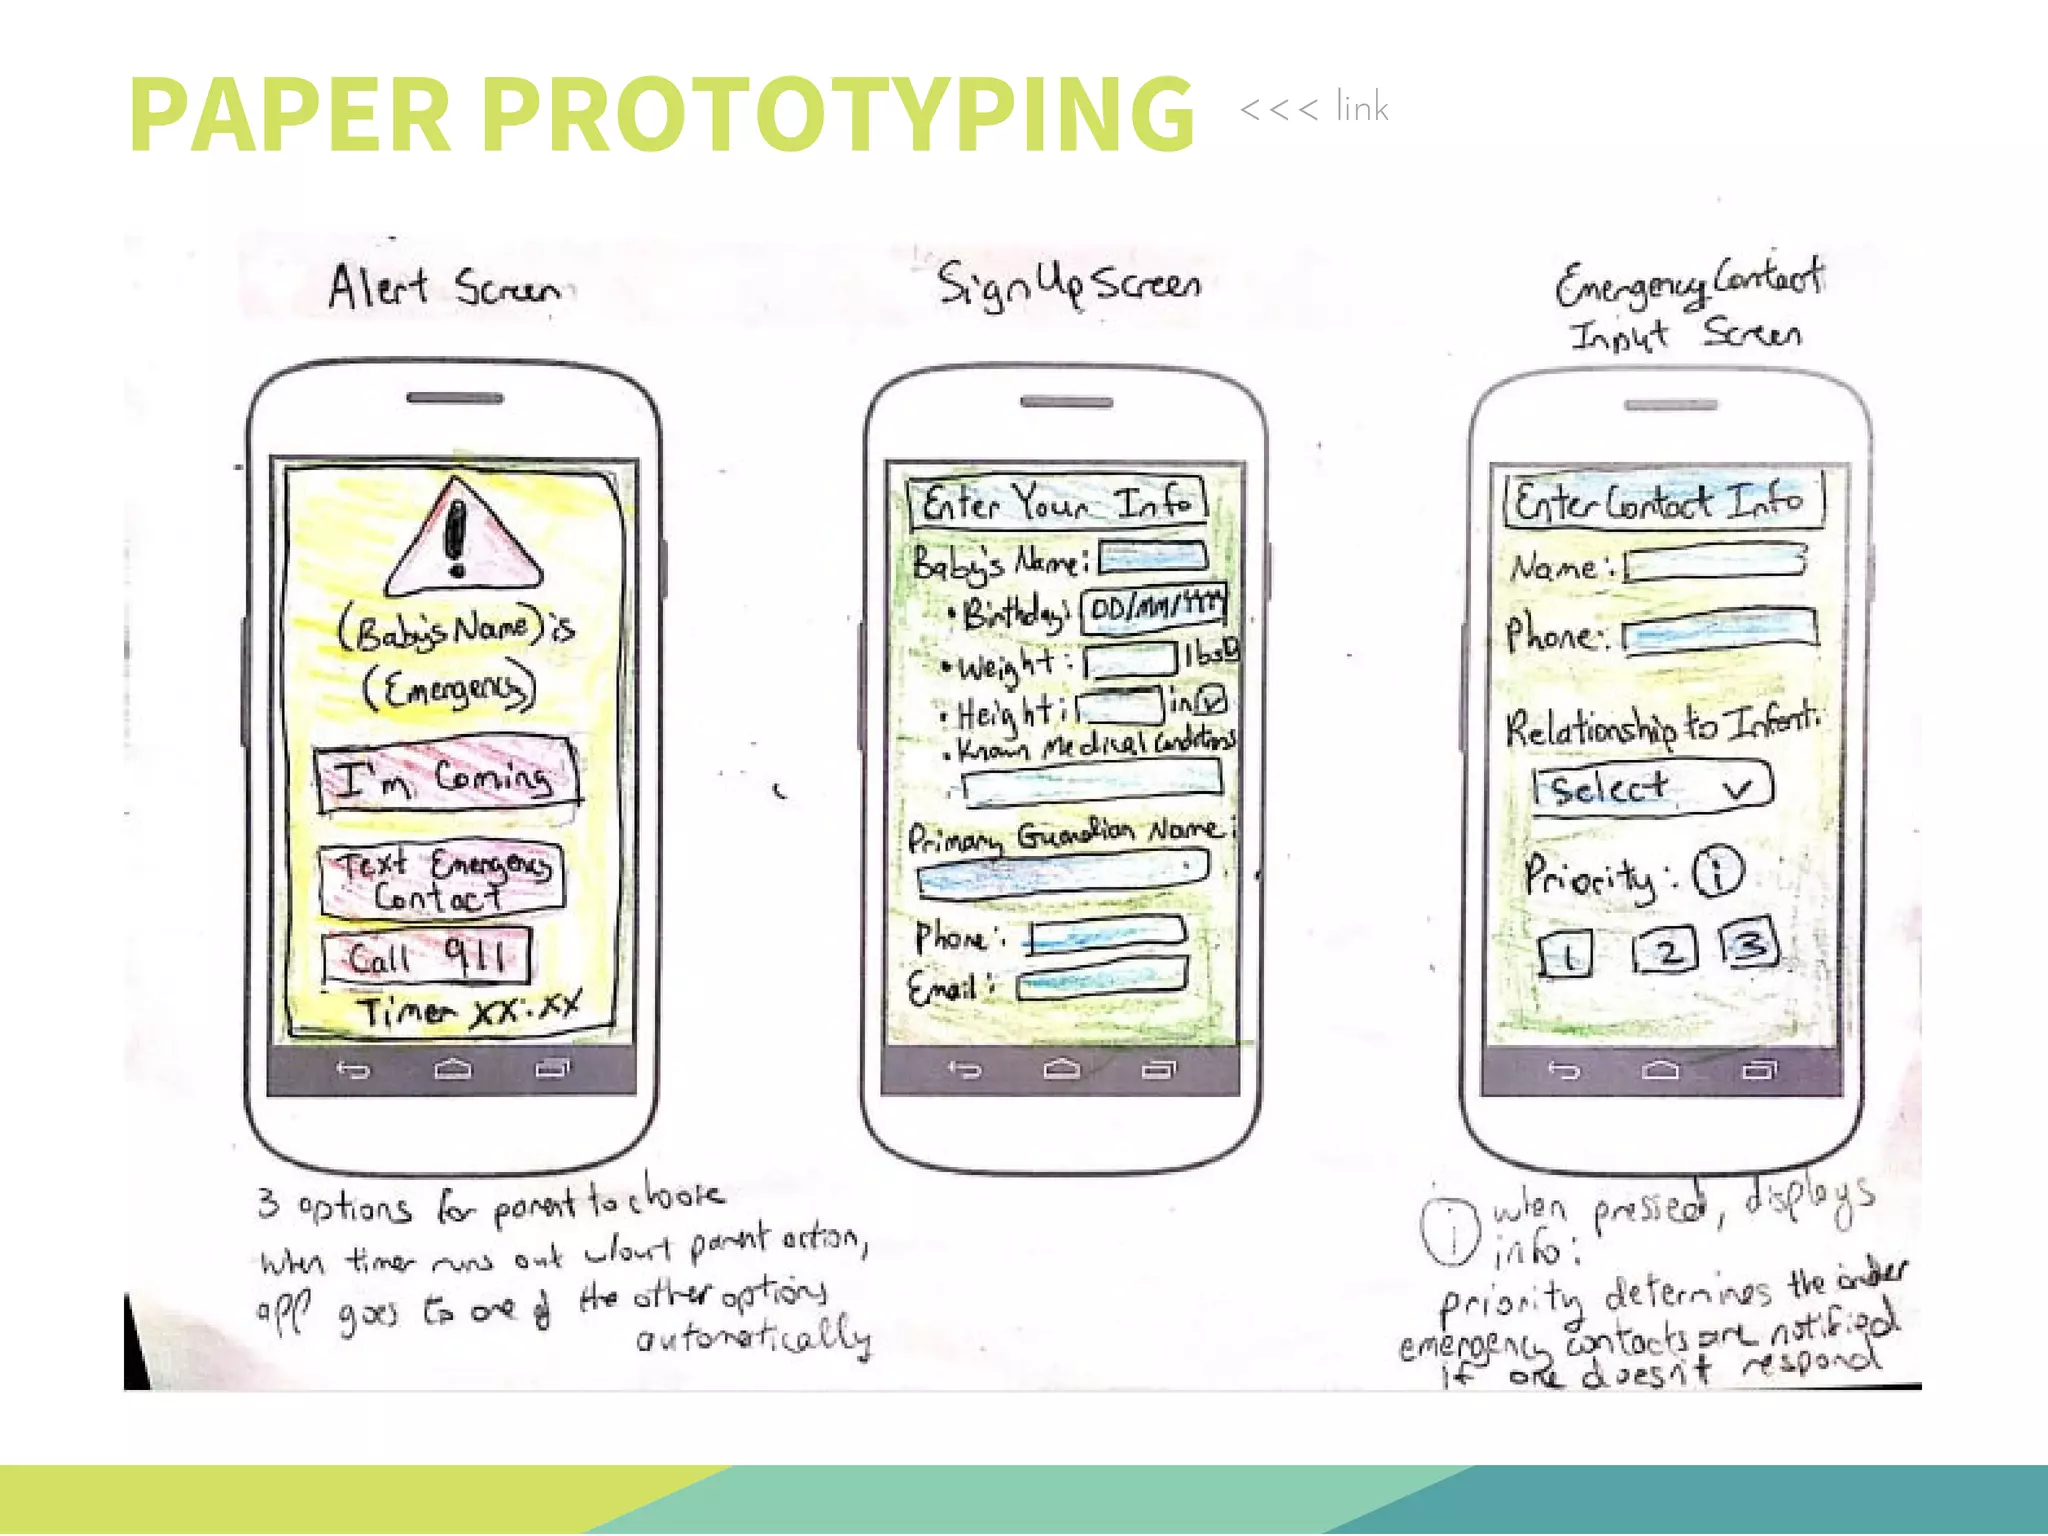 PAPER PROTOTYPING <<< link
Alert Screen
(Baby's Name) is
(Emergency)
I'm Coming
Text Emergency
Contact
Call 911
Timer XX:XX
3 options for parent to choose
when timer runs out w/out parent action,
app goes to one of the other options
automatically
Sign Up Screen
Enter Your Info
Baby's Name:
• Birthday: DD/MM/YYYY
• Weight: lbs
• Height: in
• Known Medical Conditions
Primary Guardian Name:
Phone:
Email:
Emergency Contact
Input Screen
Enter Contact Info
Name:
Phone:
Relationship to Infant:
Select
Priority: i
1 2 3
i when pressed, displays
info:
priority determines the order
emergency contacts are notified
if one doesn't respond